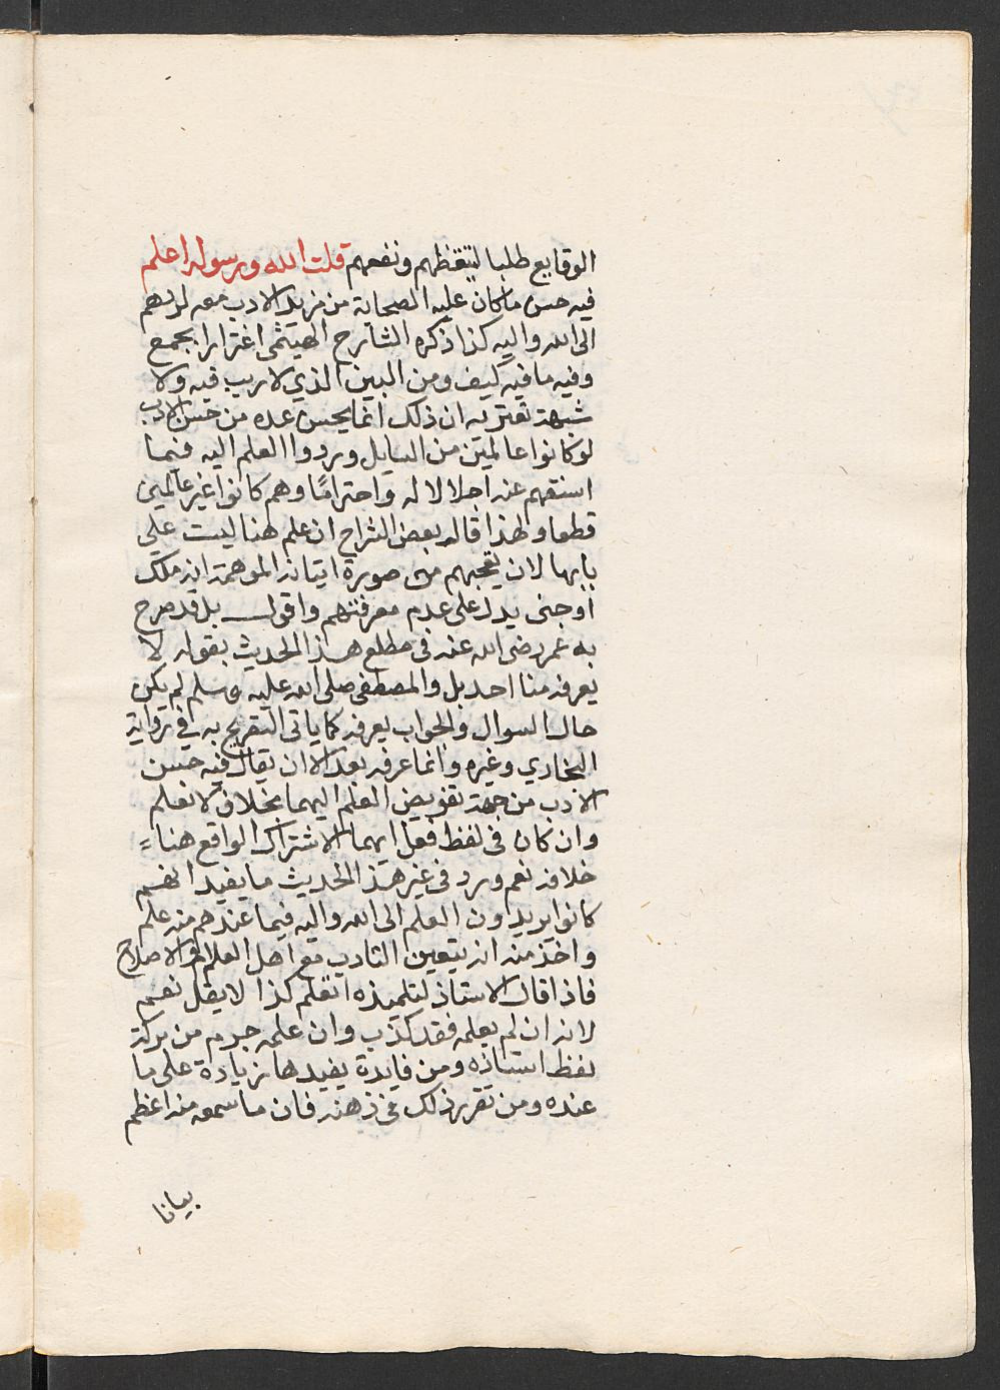 الوقايع طلبا لتيقظهم ونفعهم قلت الله ورسوله اعلم
فيه حسن ما كان عليه الصحابة من مزيد الادب معه لردهم
الى الله واليه كذا ذكره الشارح الهيثمى اغترارا بجمع
وفيه ما فيه كيف ومن البين الذي لا ريب فيه ولا
شبهة تعتريه ان ذلك انما يحسن عده من حسن الادب
لو كانوا عالمين من السايل وردوا العلم اليه فيما
استفهم عنه اجلالا له واحتراما وهم كانوا غير عالمين
قطعا ولهذا قال بعض الشراح ان علم هنا ليست على
بابها لان تعجبهم من صورة اتيانه الموهمة انه ملك
او جنى يدل على عدم معرفتهم واقول بل قد صرح
به عمر رضى الله عنه فى مطلع هذا الحديث بقوله لا
يعرفه منا احد بل والمصطفى صلى الله عليه وسلم لم يكن
حال السوال والجواب يعرفه كما ياتى التصريح به فى رواية
البخاري وغيره وانما عرفه بعد الا ان يقال فيه حسن
الادب من جهة تفويض العلم اليهما بخلاف لا نعلم
وان كان فى لفظ افعل ايهما الاشتراك الواقع هنا
خلافه نعم ورد فى غير هذا الحديث ما يفيد انهم
كانوا يريدون العلم الى الله واليه فيما عندهم منه علم
واخذ منه انه يتعين التادب مع اهل العلم والاصلاح
فاذا قال الاستاذ لتلميذه اتعلم كذا لا يقل نعم
لانه ان لم يعلمه فقد كذب وان علمه حرم من بركة
لفظ استاذه ومن فايدة يفيدها زيادة على ما
عنده ومن تقرر ذلك فى ذهنه فان ما سمعه منه اعظم
بيانا